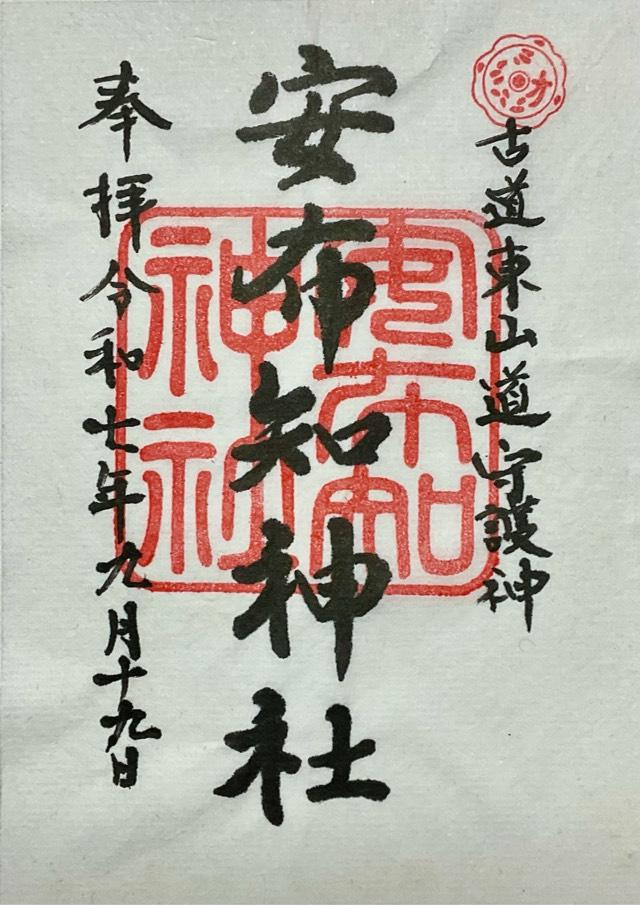 古道東山道守護神
安布知神社
奉拝令和七年九月十九日